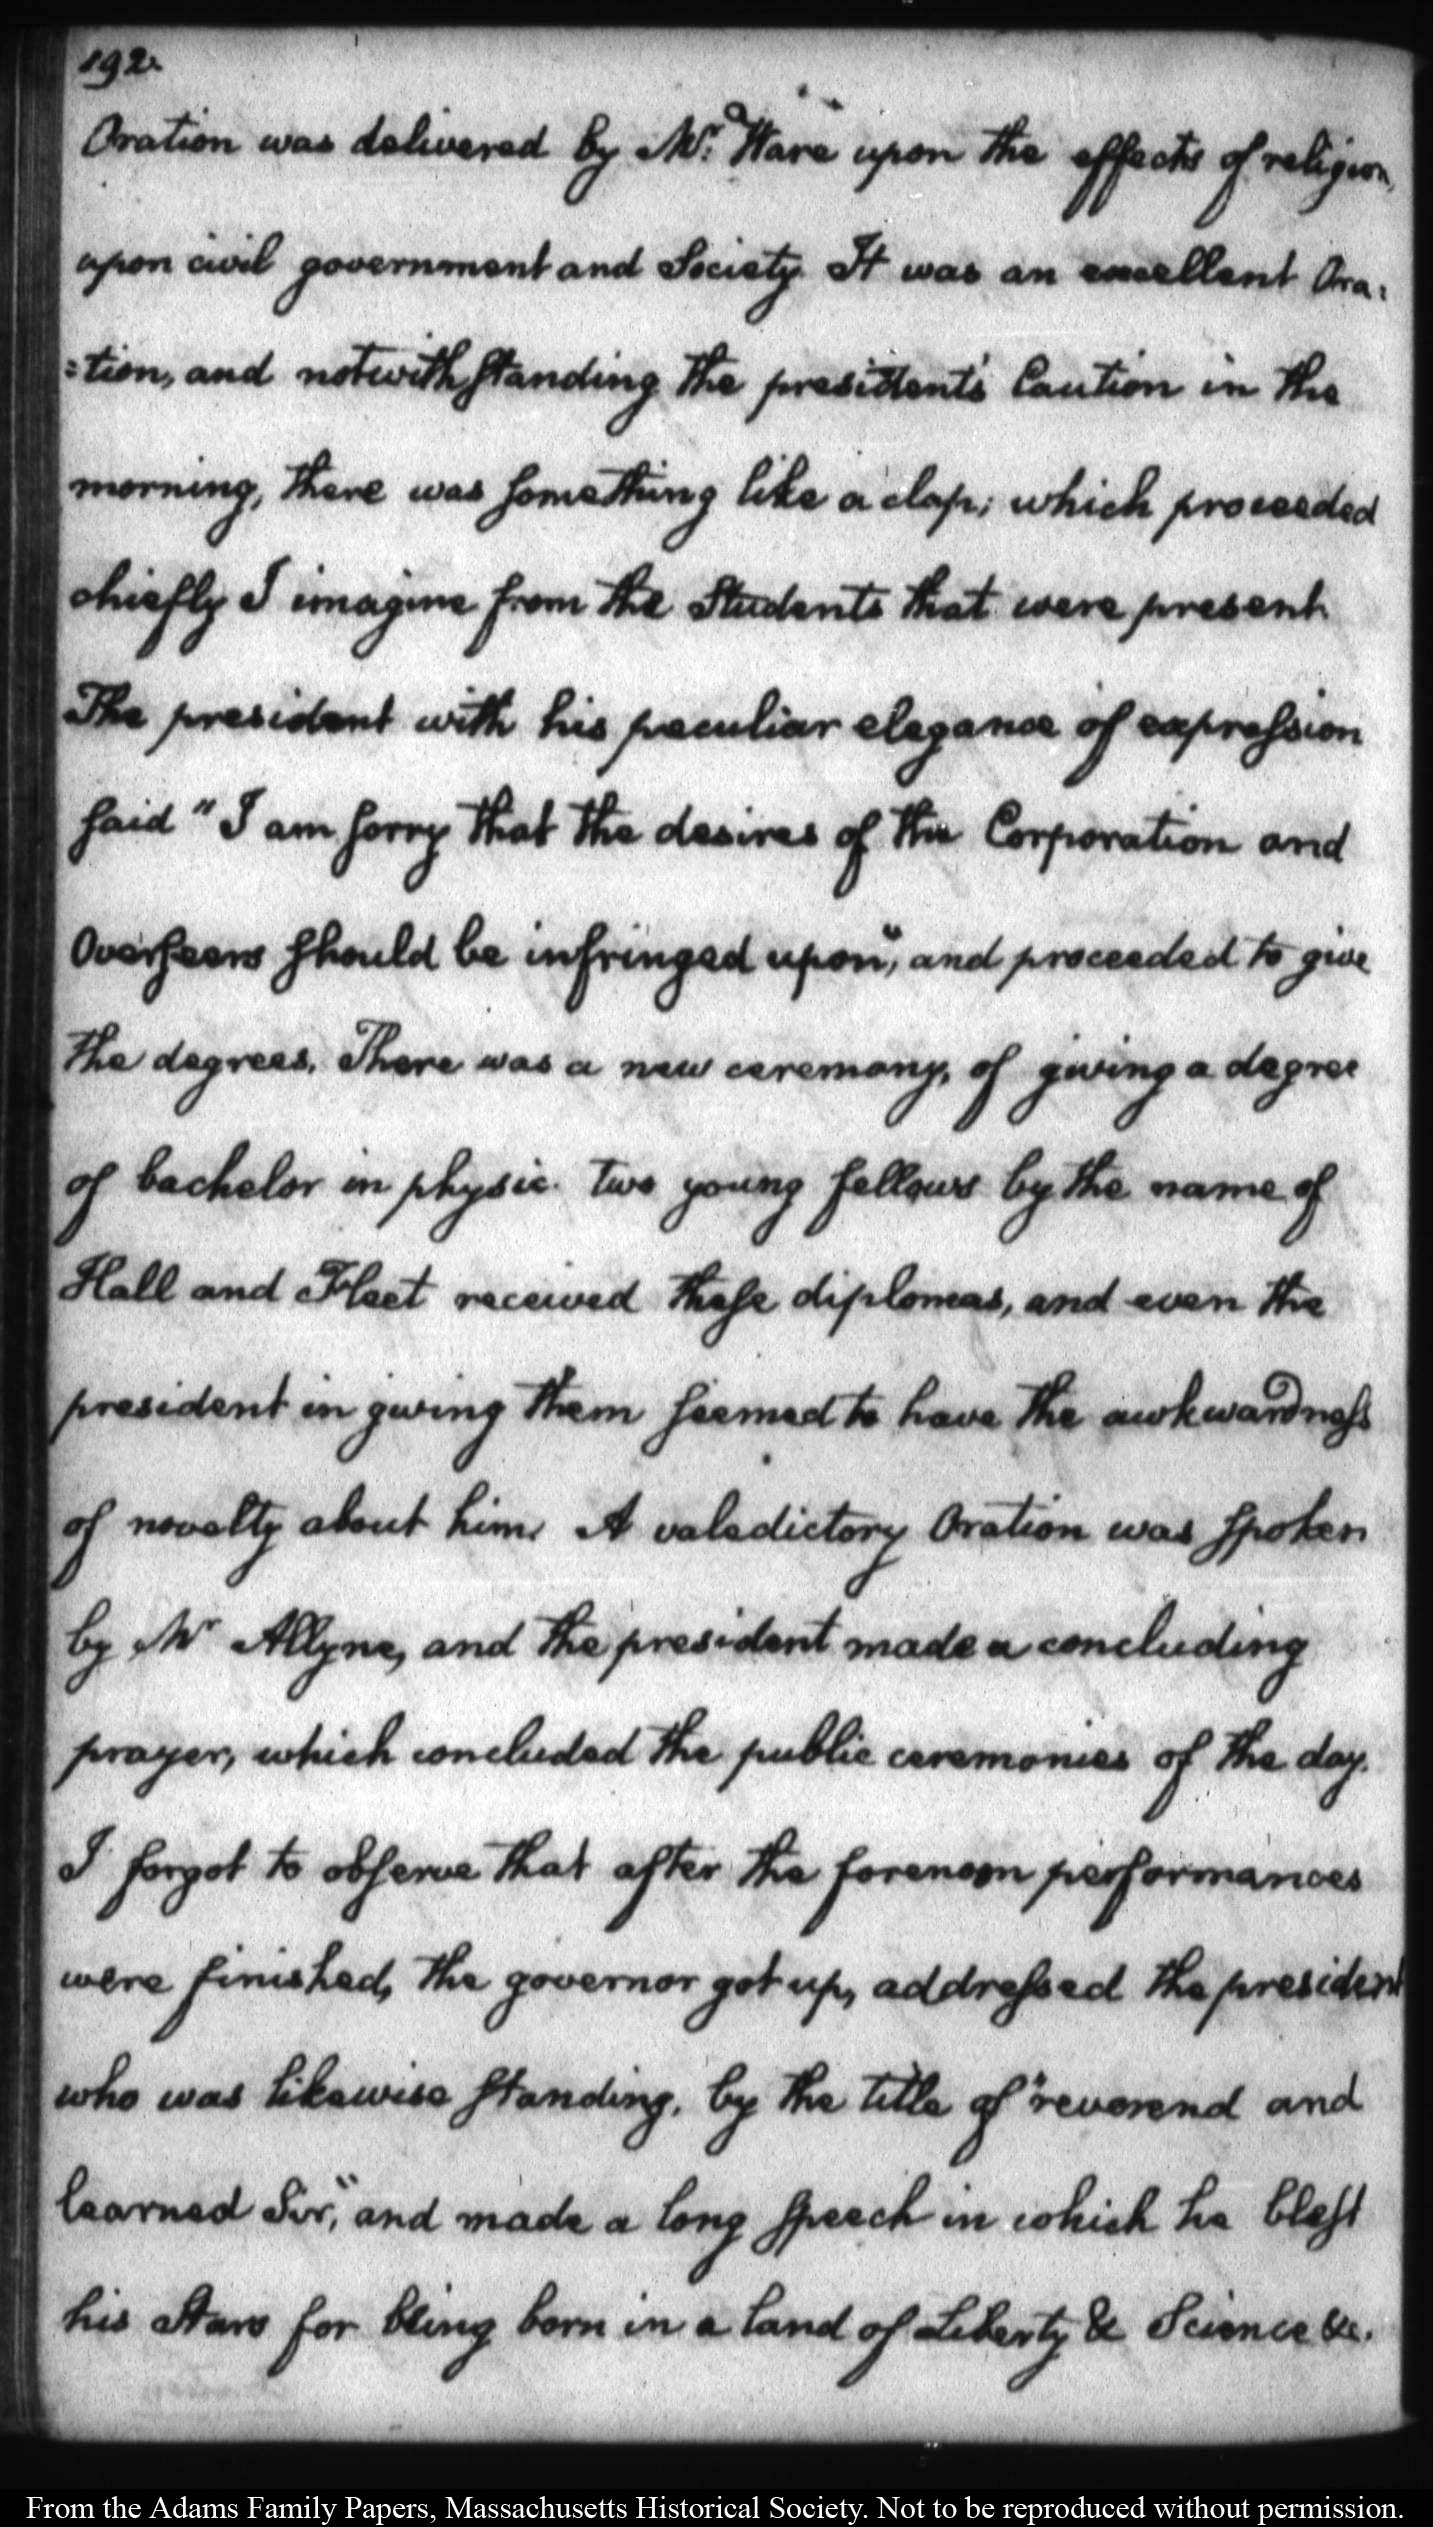 192.
Oration was delivered by Mr. Ware upon the effects of religion,
upon civil government and Society. It was an excellent Ora=
=tion, and notwithstanding the president's Caution in the
morning, there was something like a clap; which proceeded
chiefly I imagine from the Students that were present.
The president with his peculiar elegance of expression
said "I am sorry that the desires of the Corporation and
Overseers should be infringed upon", and proceeded to give
the degrees. There was a new ceremony, of giving a degree
of bachelor in physic. two young fellows by the name of
Hall and Fleet received these diplomas, and even the
president in giving them seemed to have the awkwardness
of novelty about him. A valedictory Oration was spoken
by Mr Allyne, and the president made a concluding
prayer, which concluded the public ceremonies of the day.
I forgot to observe that after the forenoon performances
were finished, the governor got up, addressed the president
who was likewise standing, by the title of "reverend and
learned Sir," and made a long speech in which he blest
his Stars for being born in a land of Liberty & Science &c.
From the Adams Family Papers, Massachusetts Historical Society. Not to be reproduced without permission.